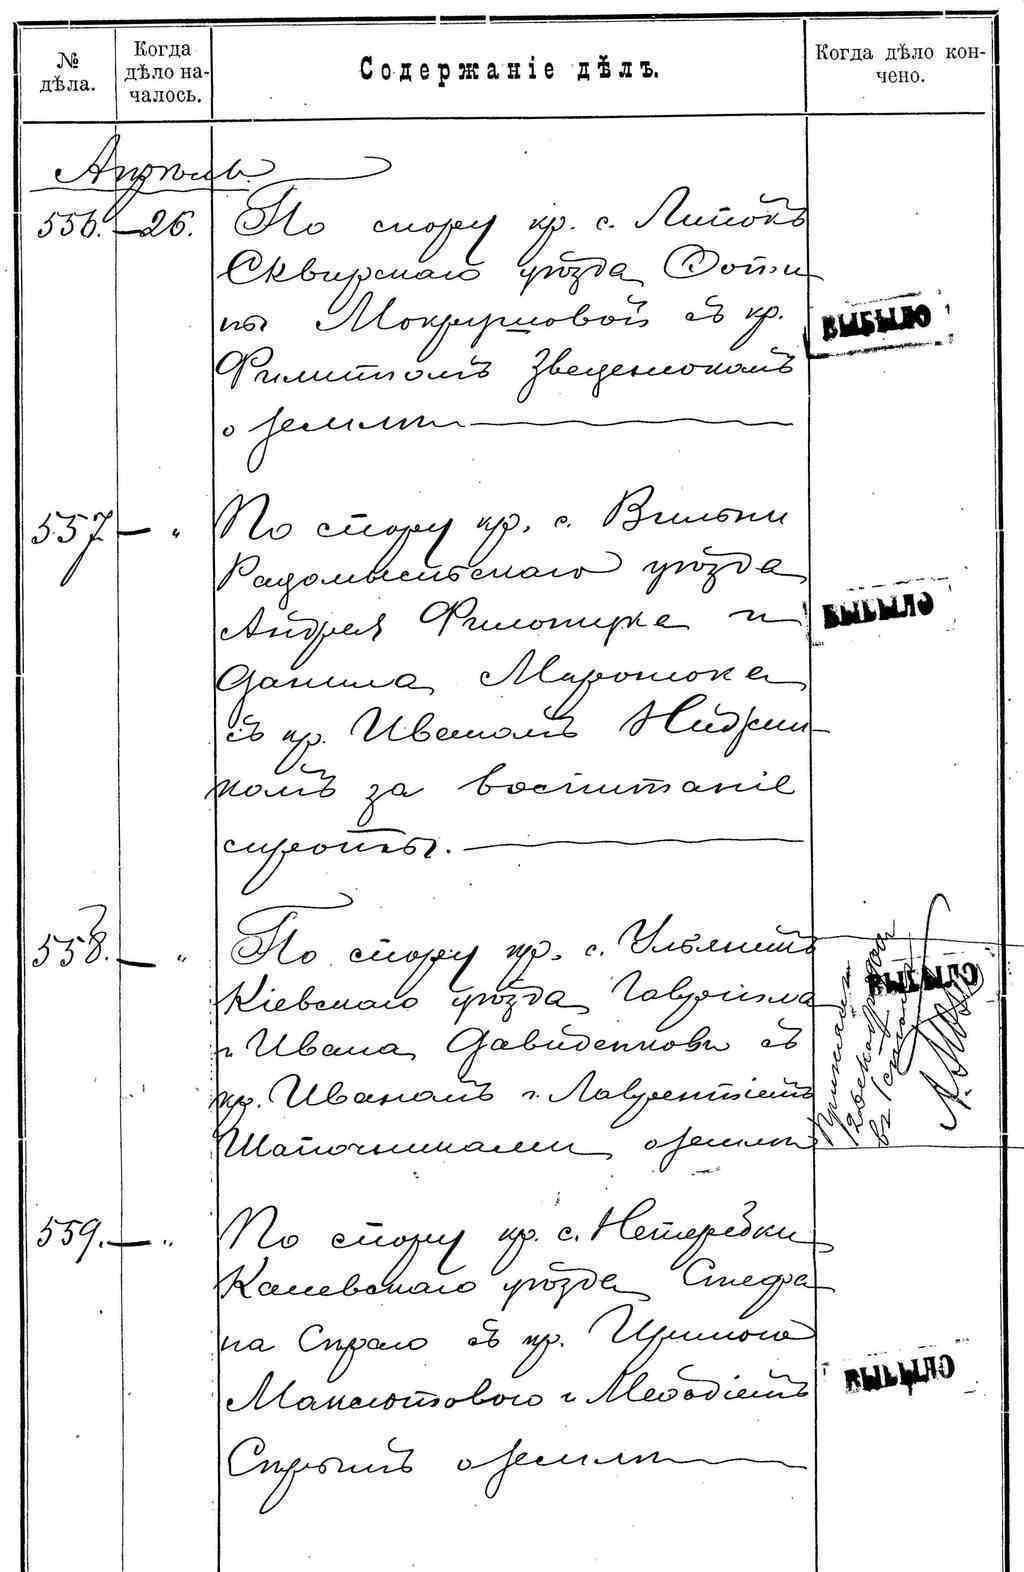 № дѣла.
Когда дѣло на-
чалось.
Содержаніе дѣлъ.
Когда дѣло кон-
чено.
Апрѣль
556. — 26. По спору кр. с. Липокъ
Сквирскаго уѣзда Фоти
ны Мокруповой съ кр.
Филиппомъ
о землѣ
ВЫБЫЛО
557 — „ По спору кр. с. Вильни
Радомысльскаго уѣзда
Андрея Филопука и
Данила Миронюка
съ кр. Иваномъ
комъ за воспитаніе
сироты.
ВЫБЫЛО
558. — „ По спору кр. с. Ульяникъ
Кіевскаго уѣзда Гавріила
и Ивана Давиденковъ съ
кр. Иваномъ и Лаврентіемъ
Шапочниками о землѣ
ВЫБЫЛО
559. — „ По спору кр. с. Нетеребки
Каневскаго уѣзда Стефа
на Спраго съ кр. Ириною
Максютовою и Меѳодіемъ
Спрымъ о землѣ
ВЫБЫЛО